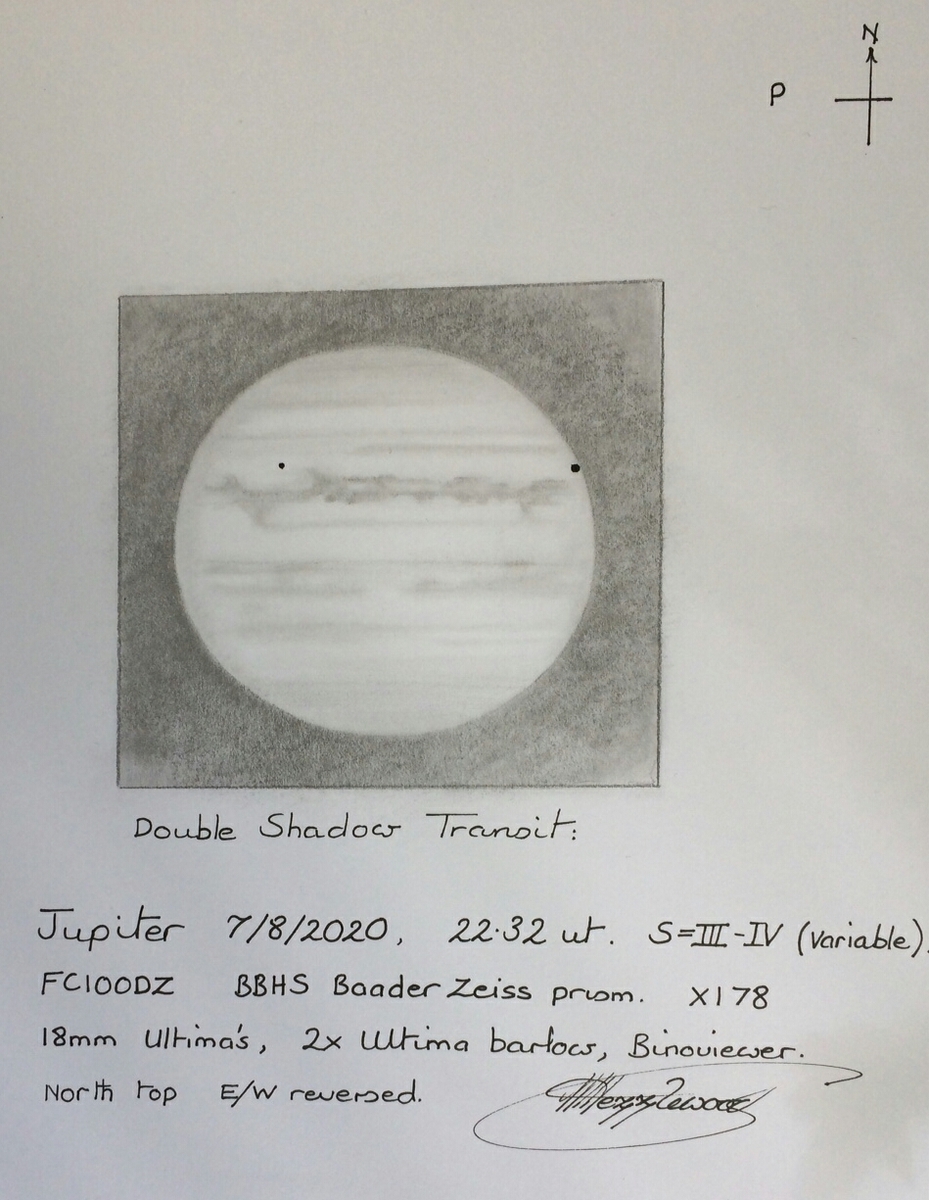 N
P
Double Shadow Transit:
Jupiter 7/8/2020, 22·32 ut. S=III-IV (variable).
FC100DZ BBHS Baader Zeiss prism. X178
18mm Ultima's, 2x Ultima barlow, Binoviewer.
North top E/W reversed.